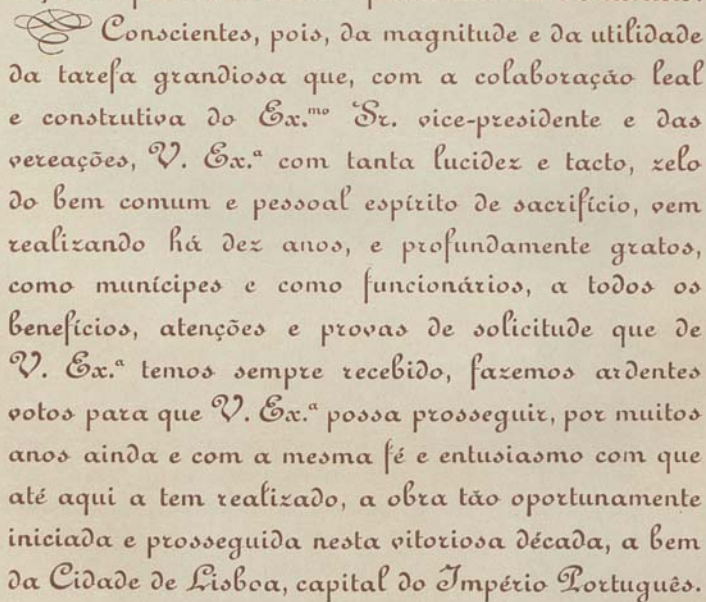 Conscientes, pois, da magnitude e da utilidade
da tarefa grandiosa que, com a colaboração leal
e construtiva do Ex.ᵐᵒ Sr. vice-presidente e das
vereações, V. Ex.ª com tanta lucidez e tacto, zelo
do bem comum e pessoal espírito de sacrifício, vem
realizando há dez anos, e profundamente gratos,
como munícipes e como funcionários, a todos os
benefícios, atenções e provas de solicitude que de
V. Ex.ª temos sempre recebido, fazemos ardentes
votos para que V. Ex.ª possa prosseguir, por muitos
anos ainda e com a mesma fé e entusiasmo com que
até aqui a tem realizado, a obra tão oportunamente
iniciada e prosseguida nesta vitoriosa década, a bem
da Cidade de Lisboa, capital do Império Português.